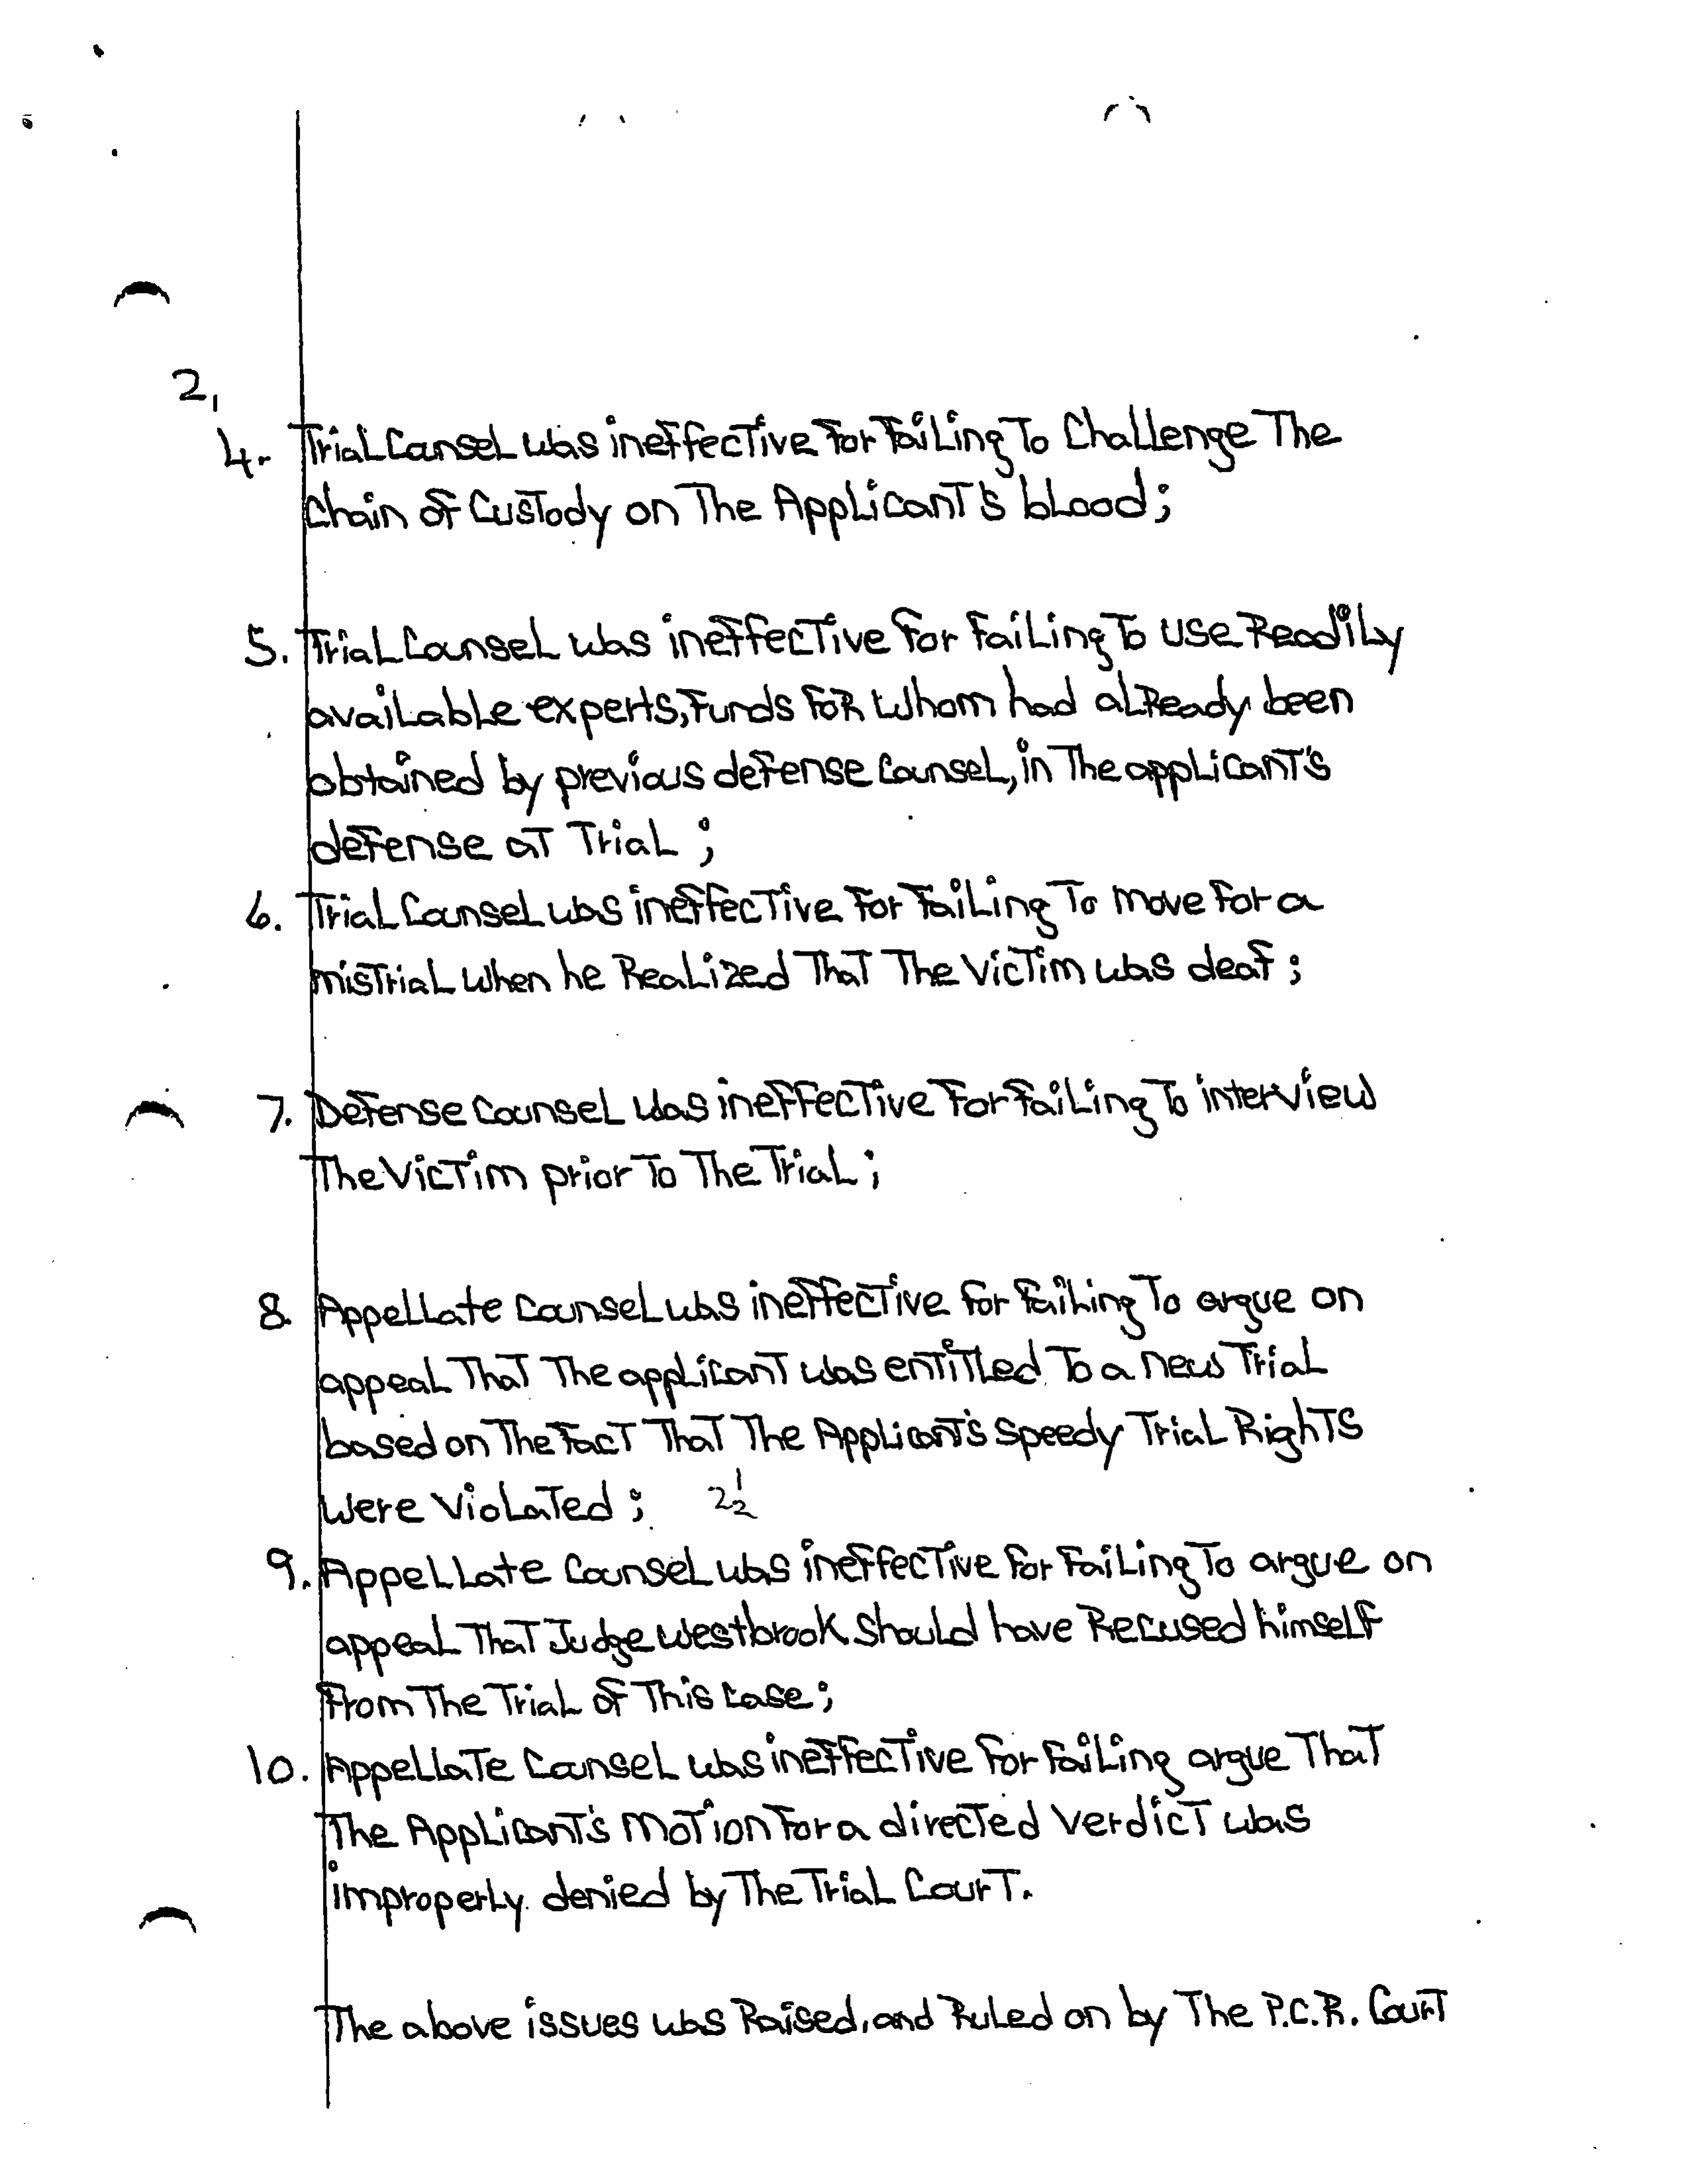 2.
4. Trial Counsel was ineffective for failing To Challenge The
Chain of Custody on The Applicant's blood;
5. Trial Counsel was ineffective for failing To use Readily
available experts, funds for whom had already been
obtained by previous defense Counsel, in The applicant's
defense at Trial;
6. Trial Counsel was ineffective for failing To move for a
misTrial when he Realized That The Victim was deaf;
7. Defense Counsel was ineffective for failing To interview
The Victim prior To The Trial;
8. Appellate Counsel was ineffective for failing To argue on
appeal That The applicant was entitled To a new Trial
based on The fact That The Applicant's Speedy Trial Rights
were violated; 2 1/2
9. Appellate Counsel was ineffective for failing To argue on
appeal That Judge Westbrook Should have Recused himself
from The Trial of This Case;
10. Appellate Counsel was ineffective for failing argue That
The Applicant's Motion for a directed verdict was
improperly denied by The Trial Court.
The above issues was Raised, and Ruled on by The P.C.R. Court